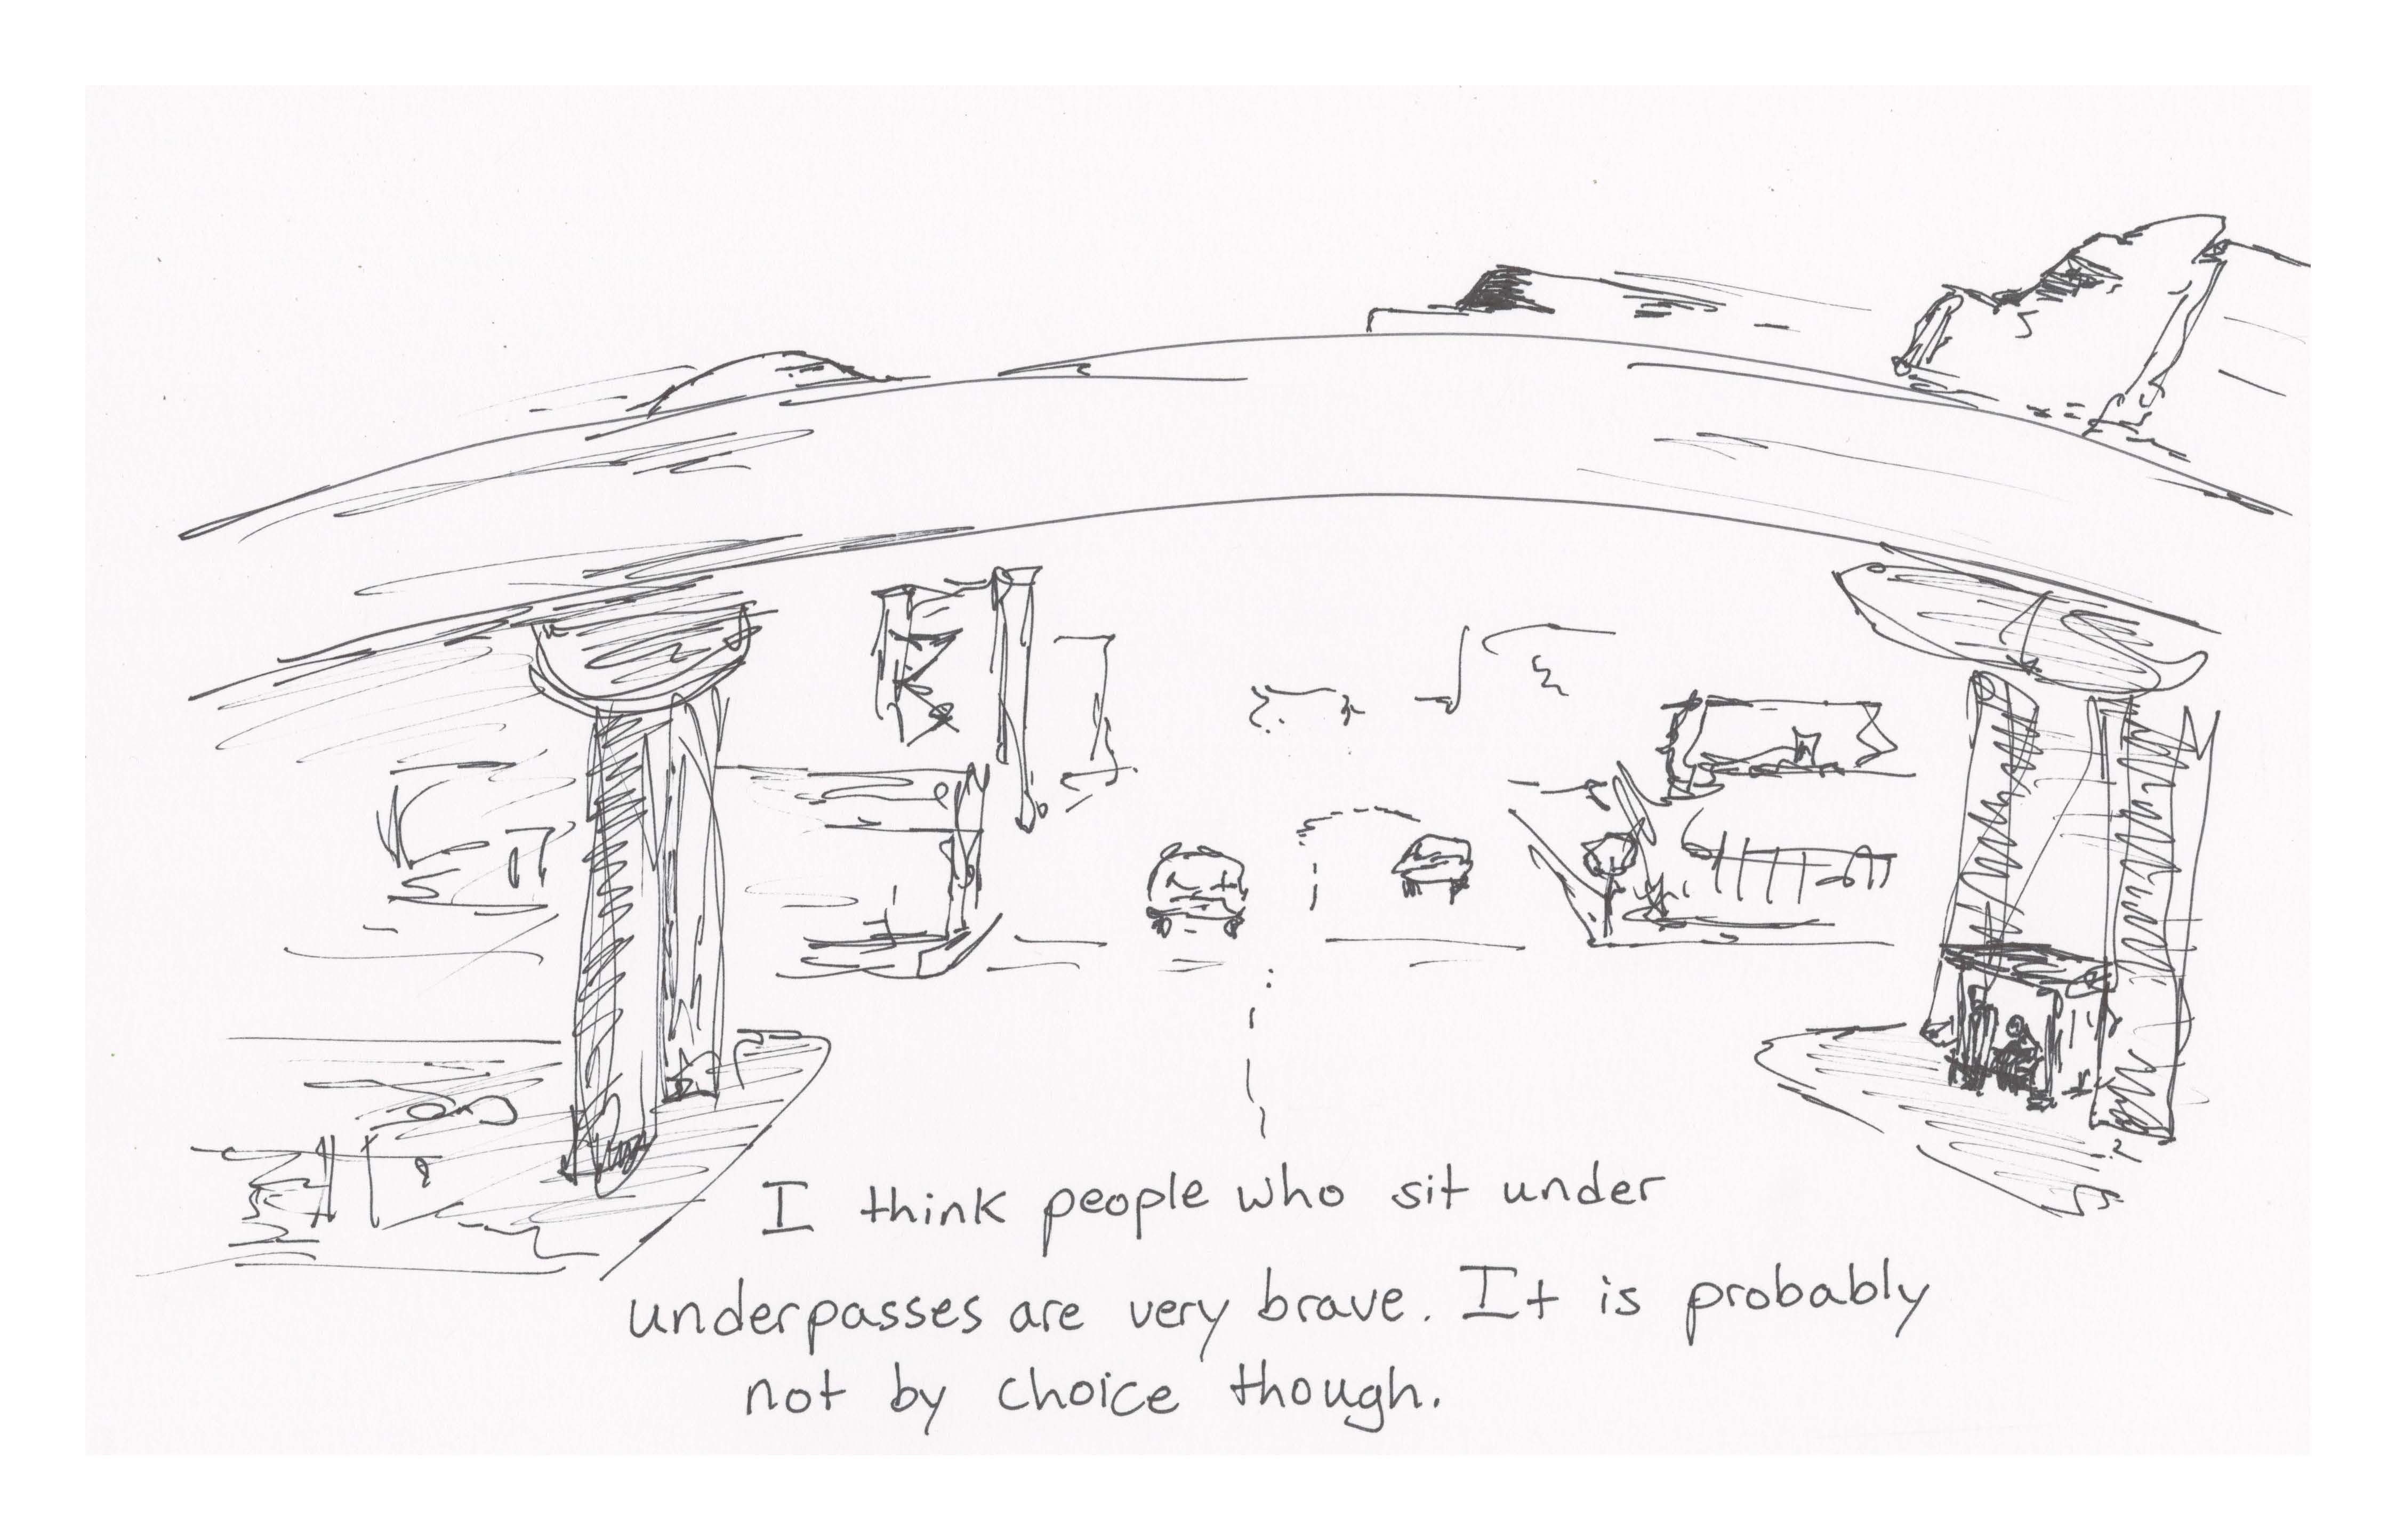 I think people who sit under
underpasses are very brave. It is probably
not by choice though.